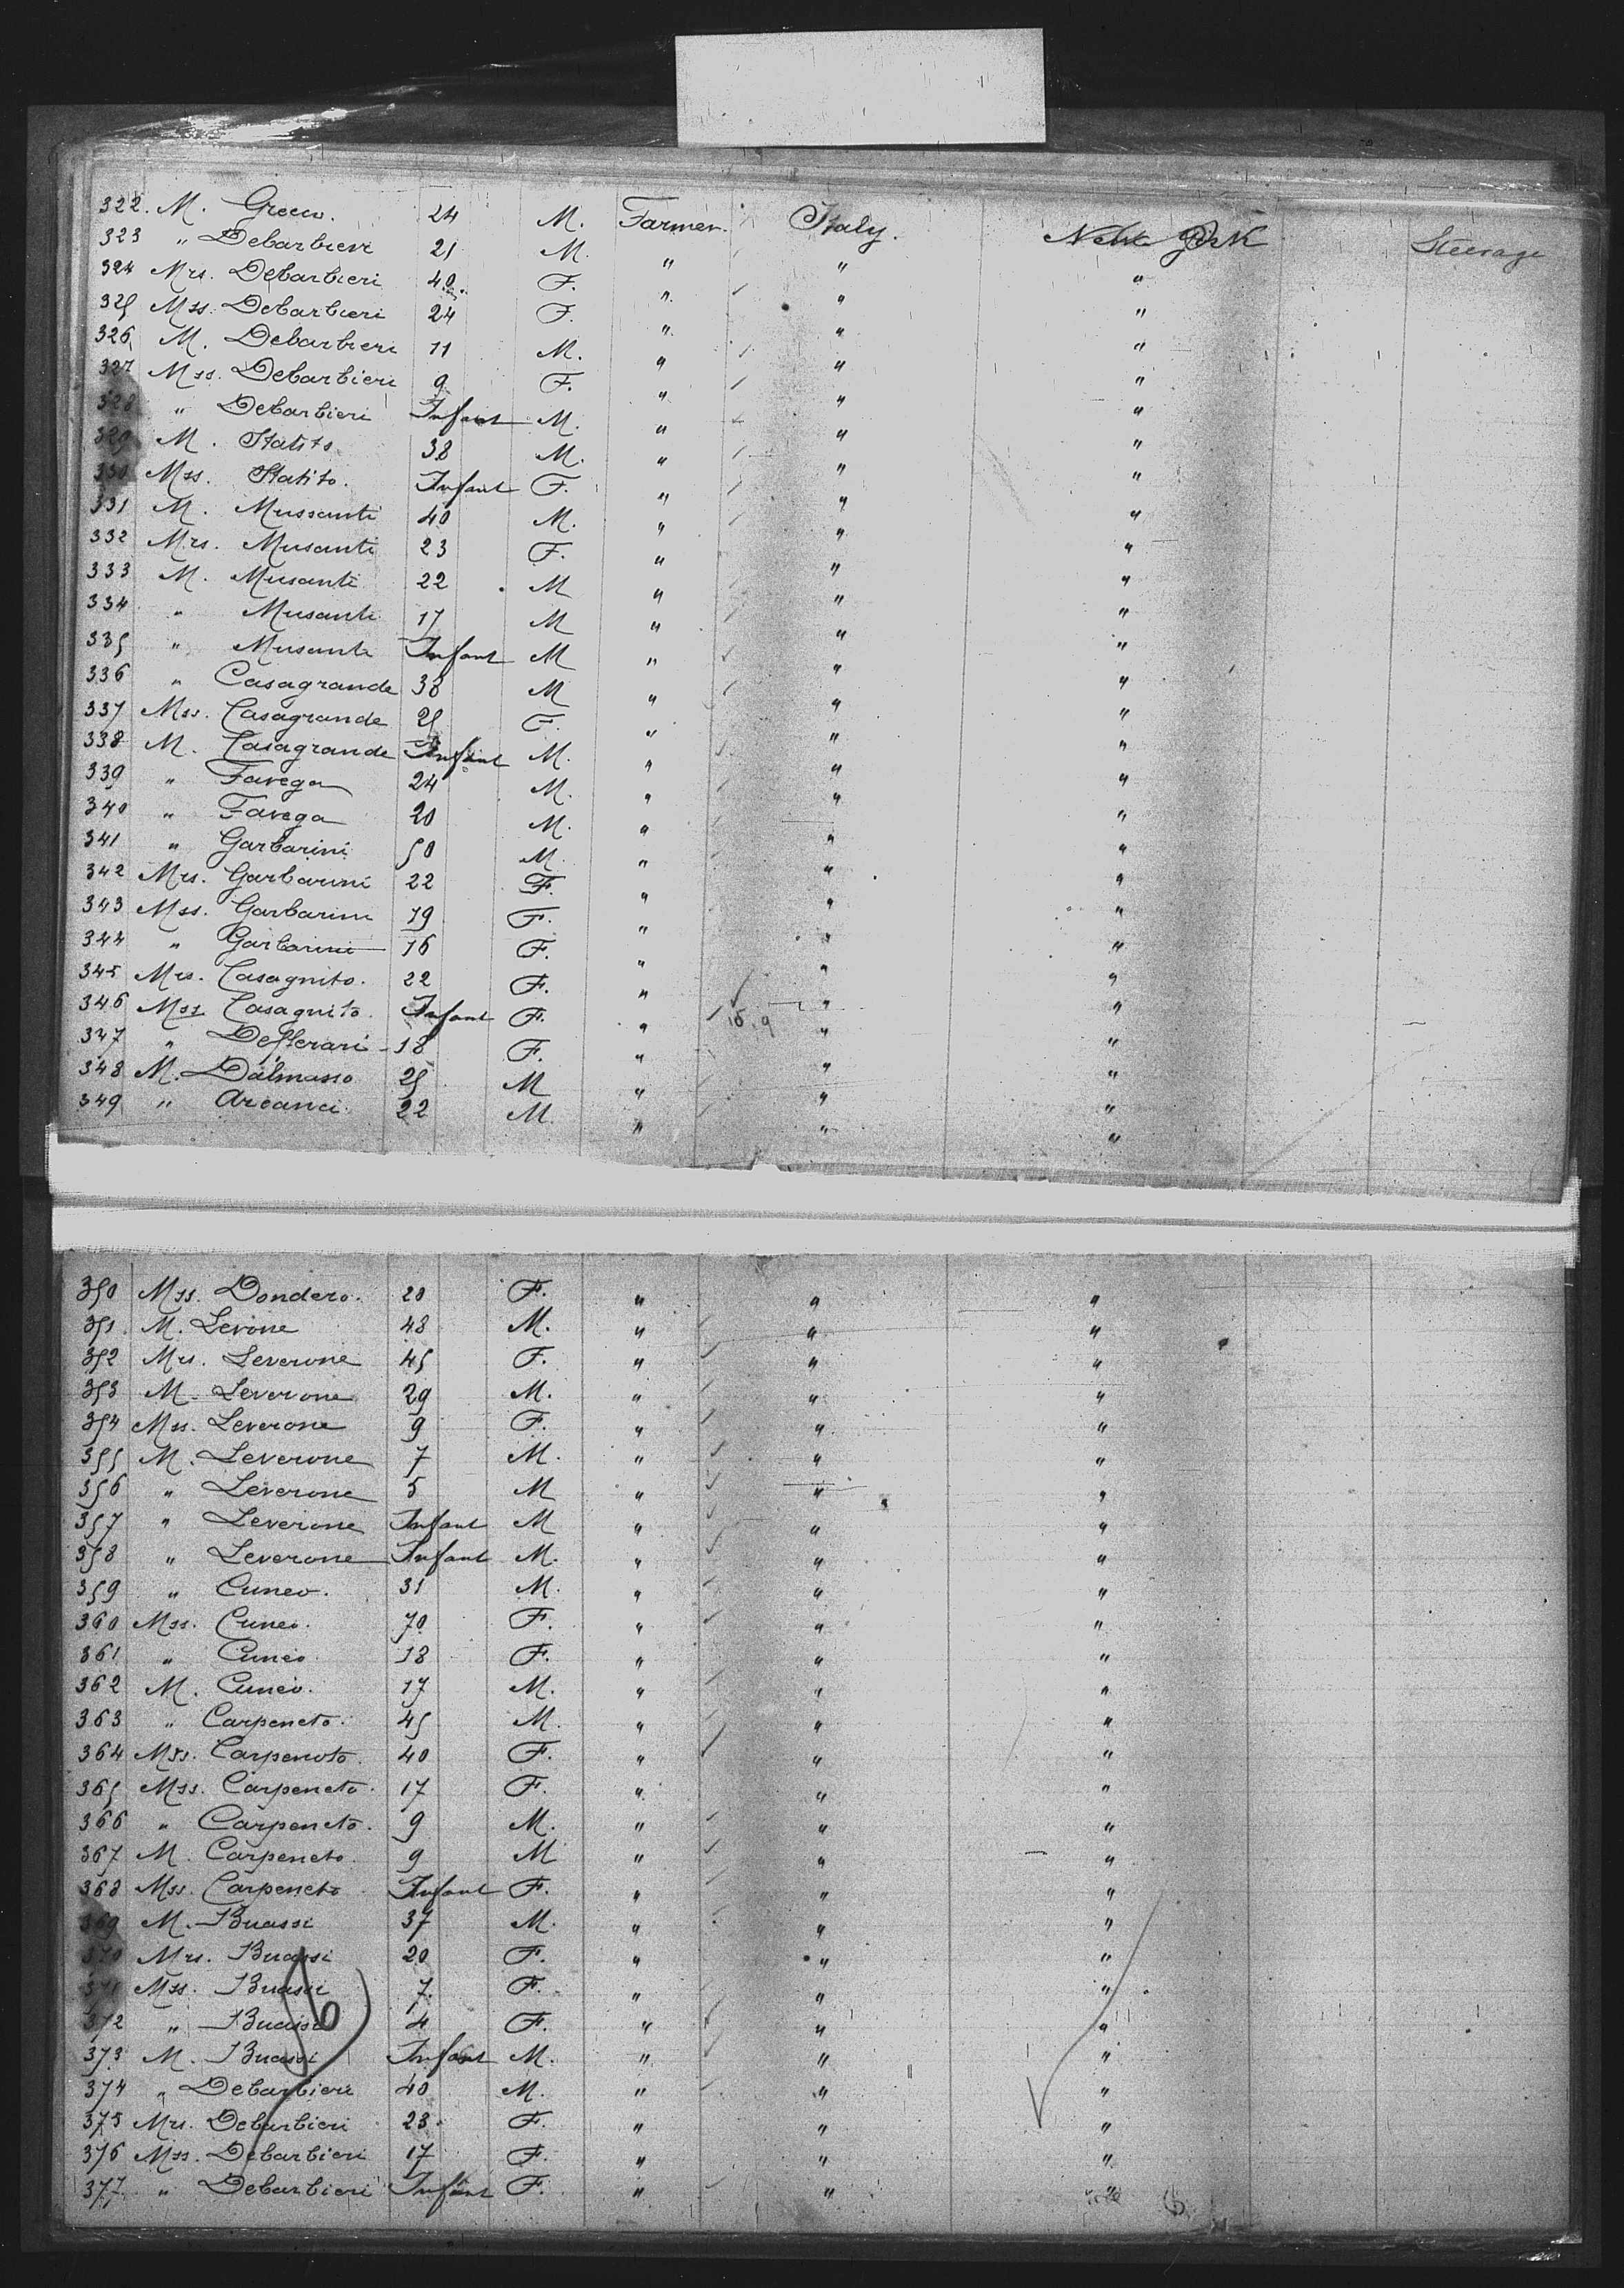 322. M. Greco. 24 M. Farmer. Italy. New York Steerage
323 " Debarbieri 21 M. " " "
324 Mrs. Debarbieri 40 F. " " "
325 Mss. Debarbieri 24 F. " " "
326 M. Debarbieri 11 M. " " "
327 Mss. Debarbieri 9 F. " " "
328 " Debarbieri Infant M. " " "
329 M. Statito 38 M. " " "
330 Mss. Statito. Infant F. " " "
331 M. Mussanti 40 M. " " "
332 Mrs. Musanti 23 F. " " "
333 M. Musanti 22 M " " "
334 " Musanti 17 M " " "
335 " Musante Infant M " " "
336 " Casagrande 38 M " " "
337 Mss. Casagrande 25 F. " " "
338 M. Casagrande Infant M. " " "
339 " Favega 24 M. " " "
340 " Favega 20 M. " " "
341 " Garbarini 50 M. " " "
342 Mrs. Garbarini 22 F. " " "
343 Mss. Garbarini 19 F. " " "
344 " Garbarini 16 F. " " "
345 Mrs. Casagnito. 22 F. " " "
346 Mss. Casagnito. Infant F. " " "
347 " Defferari 18 F. " " "
348 M. Dalmasso 25 M " " "
349 " Arcanci. 22 M. " " "
350 Mss. Dondero. 20 F. " " "
351 M. Levone 48 M. " " "
352 Mrs. Leverone 45 F. " " "
353 M. Leverone 29 M. " " "
354 Mss. Leverone 9 F. " " "
355 M. Leverone 7 M. " " "
356 " Leverone 5 M " " "
357 " Leverone Infant M " " "
358 " Leverone Infant M. " " "
359 " Cuneo. 31 M. " " "
360 Mss. Cuneo. 70 F. " " "
361 " Cuneo 18 F. " " "
362 M. Cuneo. 17 M. " " "
363 " Carpeneto. 45 M. " " "
364 Mrs. Carpenoto. 40 F. " " "
365 Mss. Carpeneto. 17 F. " " "
366 " Carpeneto. 9 M. " " "
367 M. Carpeneto. 9 M " " "
368 Mss. Carpeneto Infant F. " " "
369 M. Buassi 37 M. " " "
370 Mrs. Buassi 20 F. " " "
371 Mss. Buassi 7. F. " " "
372 " Buassi 4 F. " " "
373 M. Buassi Infant M. " " "
374 " Debarbieri 40 M. " " "
375 Mrs. Debarbieri 23 F. " " "
376 Mss. Debarbieri 17 F. " " "
377 " Debarbieri Infant F. " " "